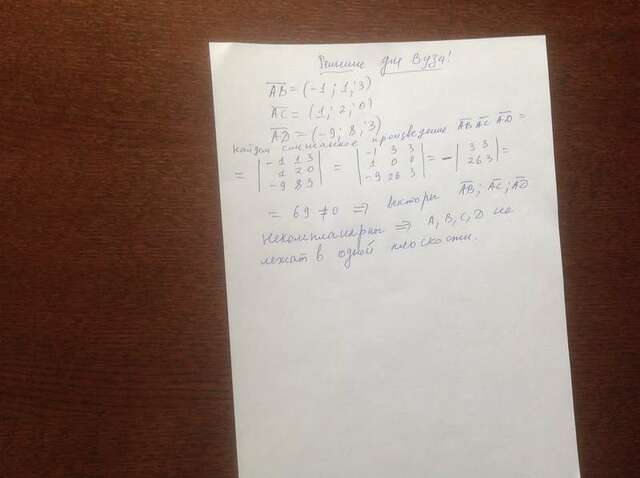 Решение для ВУЗа!
AB = (-1; 1; 3)
AC = (1; 2; 0)
AD = (-9; 8; 3)
Найдем смешанное произведение AB AC AD =
= |-1 1 3; 1 2 0; -9 8 3| = |-1 3 3; 1 0 0; -9 26 3| = -|3 3; 26 3| =
= 69 ≠ 0 ⇒ векторы AB; AC; AD
некомпланарны ⇒ A, B, C, D не
лежат в одной плоскости.